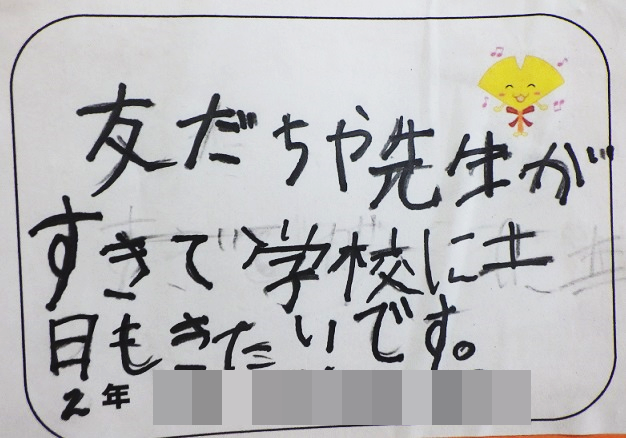 友だちや先生が
すきで学校に土
日もきたいです。
2年